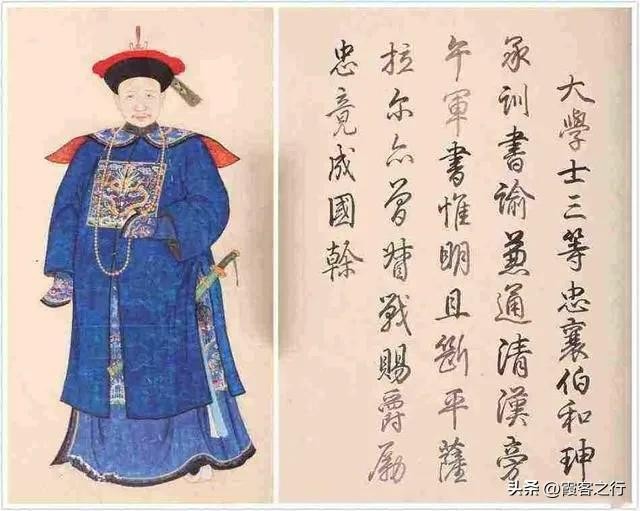 大學士三等忠襄伯和珅
承訓書諭兼通清漢旁
午軍書惟明且斷平薩
拉尔亦曽督戰賜爵勵
忠竟成國幹
头条 @霞客之行